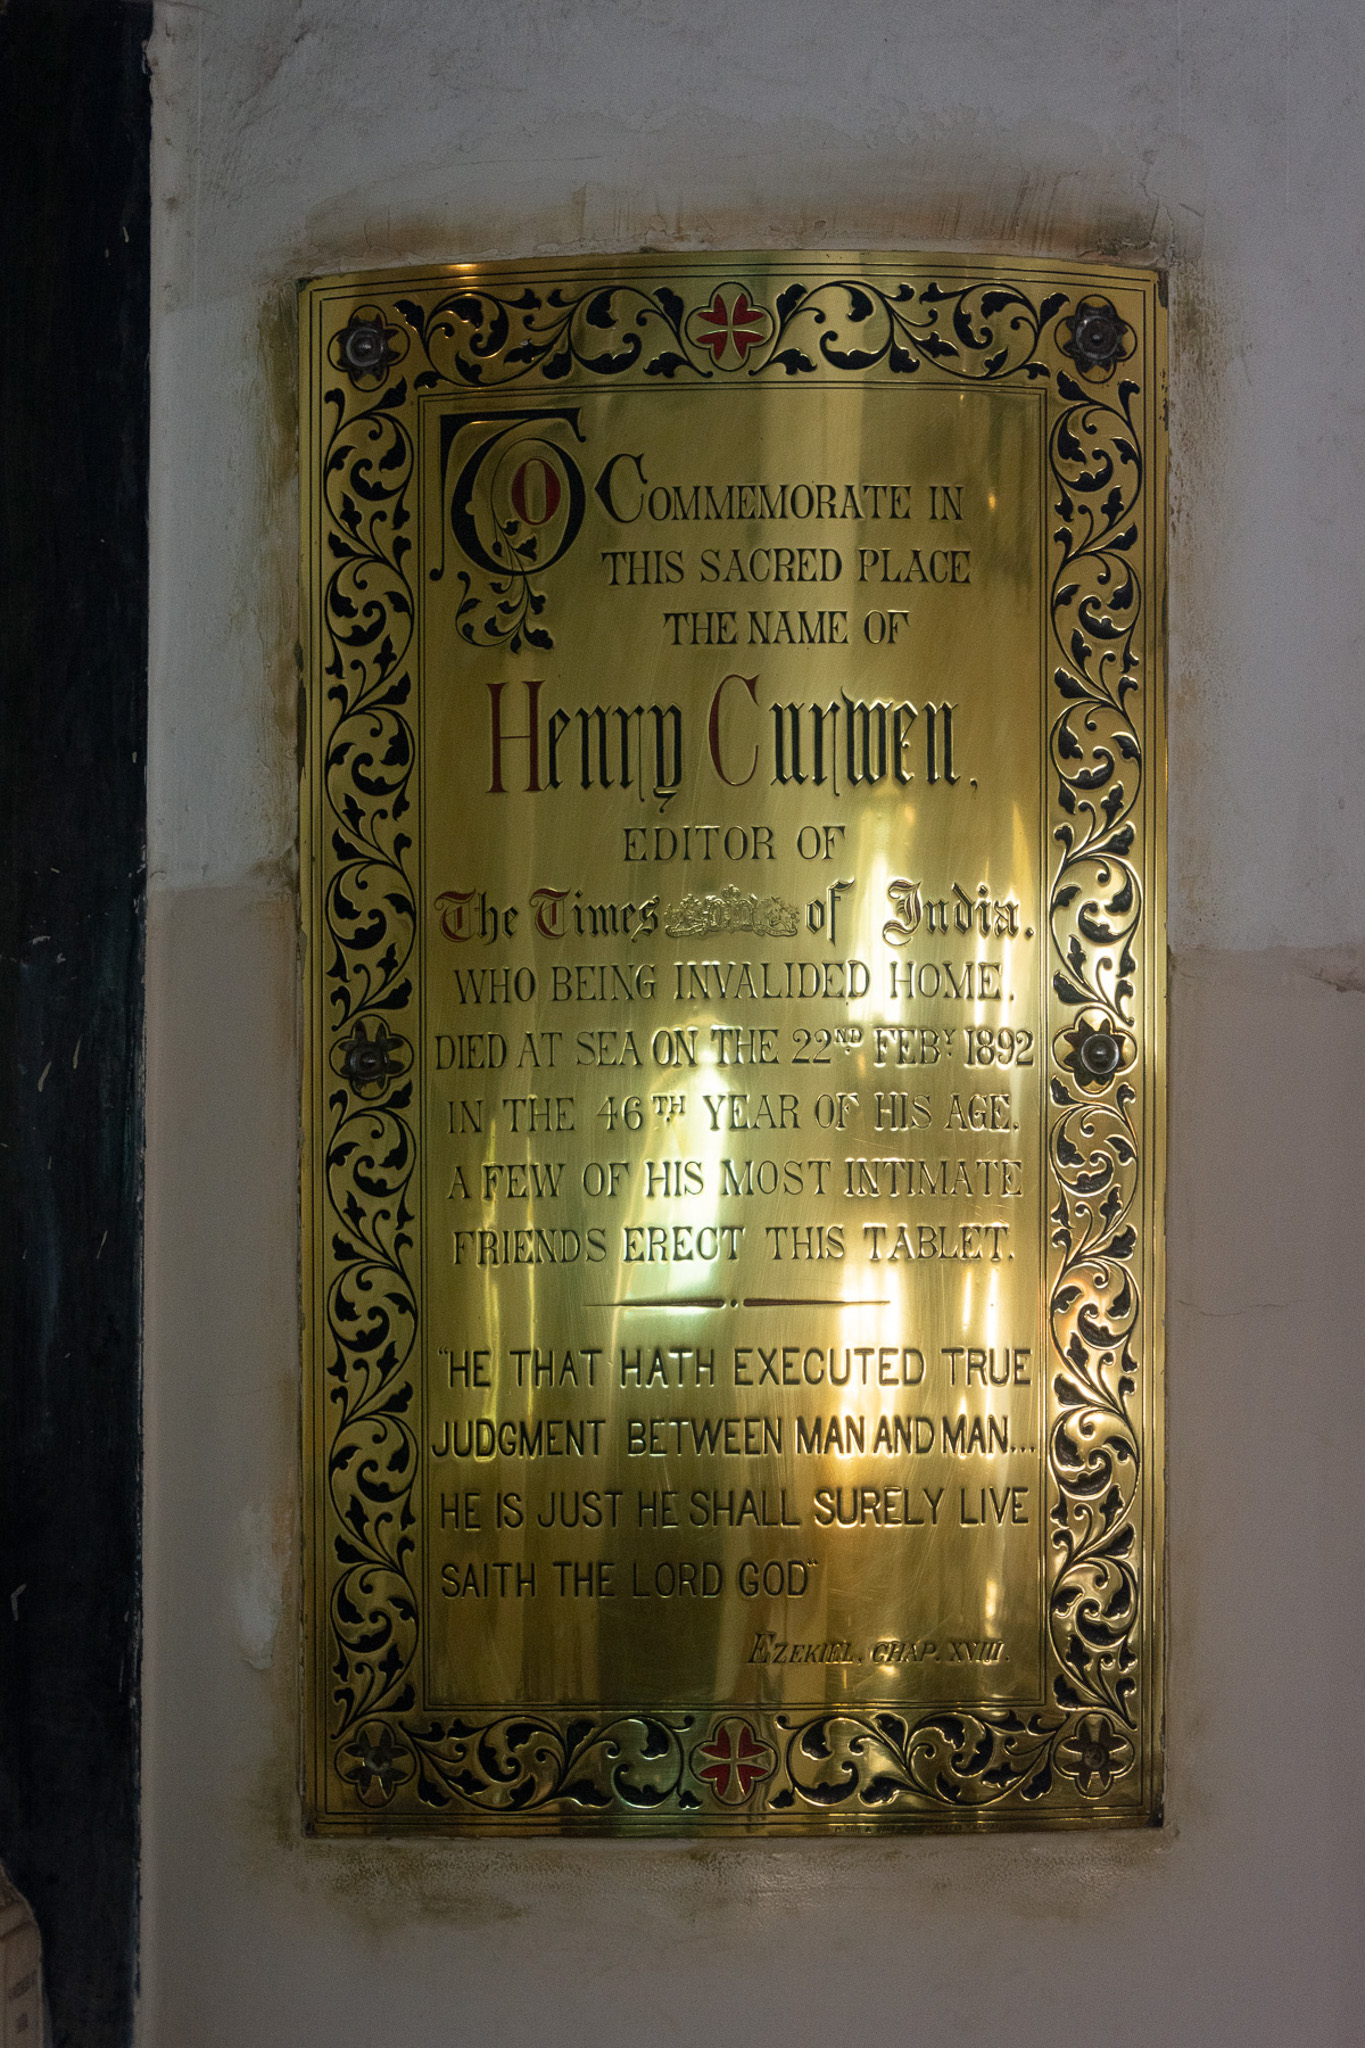 To Commemorate in
this sacred place
the name of
Henry Curwen,
EDITOR OF
The Times of India.
WHO BEING INVALIDED HOME,
DIED AT SEA ON THE 22ND FEBY 1892
IN THE 46TH YEAR OF HIS AGE.
A FEW OF HIS MOST INTIMATE
FRIENDS ERECT THIS TABLET.
"HE THAT HATH EXECUTED TRUE
JUDGMENT BETWEEN MAN AND MAN...
HE IS JUST HE SHALL SURELY LIVE
SAITH THE LORD GOD"
EZEKIEL, CHAP. XVIII.